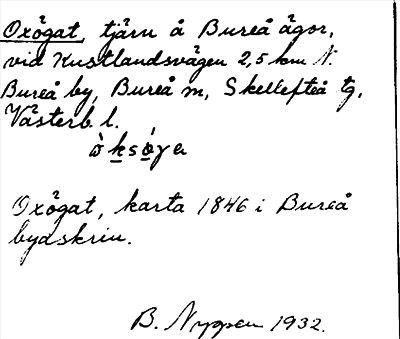 Oxögat, tjärn å Bureå ägor,
vid Kustlandsvägen 2,5 km N.
Bureå by, Bureå m, Skellefteå tg,
Västerb. l.
Oxögat, karta 1846 i Bureå
bydskrin.
B. Nygren 1932.